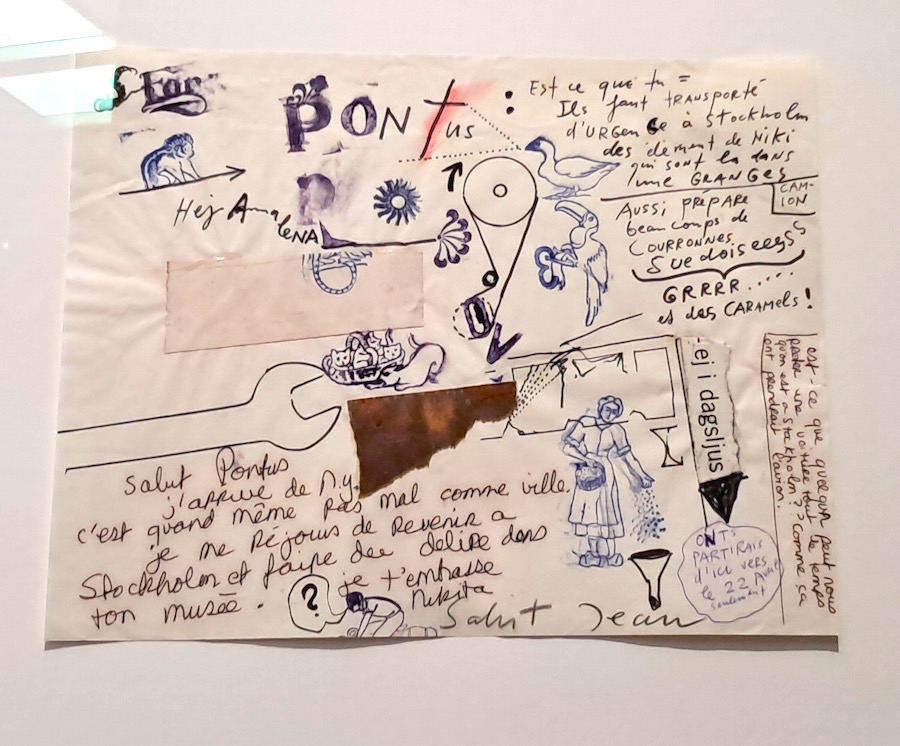 For
PONTUS :
Hej Anna
LENA
Est ce que tu =
Ils font TRANSPORTÉ
d'URGENCE à Stockholm
des élément de NIKI
qui sont là dans
une GRANGES
CAM-
ION
AUSSI PRÉPARE
beaucoups de
COURRONNES
Suedois eegss
GRRRR.....
et des CARAMELS !
ej i dagsljus
est-ce que quelqun peut nous
preter une voiture tous le temps
quon est a stockholm? ? comme ça
ont prendrait l'avion.
ONTS
PARTIRAIS
d'ici vers
le 22 Avril
seulement
Salut Pontus
j'arrive de N.Y.
c'est quand même pas mal comme ville.
je me réjouis de revenir a
Stockholm et faire des delire dans
ton musée.
je t'embrasse
Nikita
?
Salut Jean